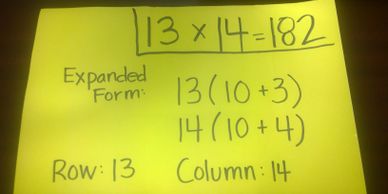 13 x 14=182
Expanded Form: 13(10+3)
14(10+4)
Row: 13 Column: 14